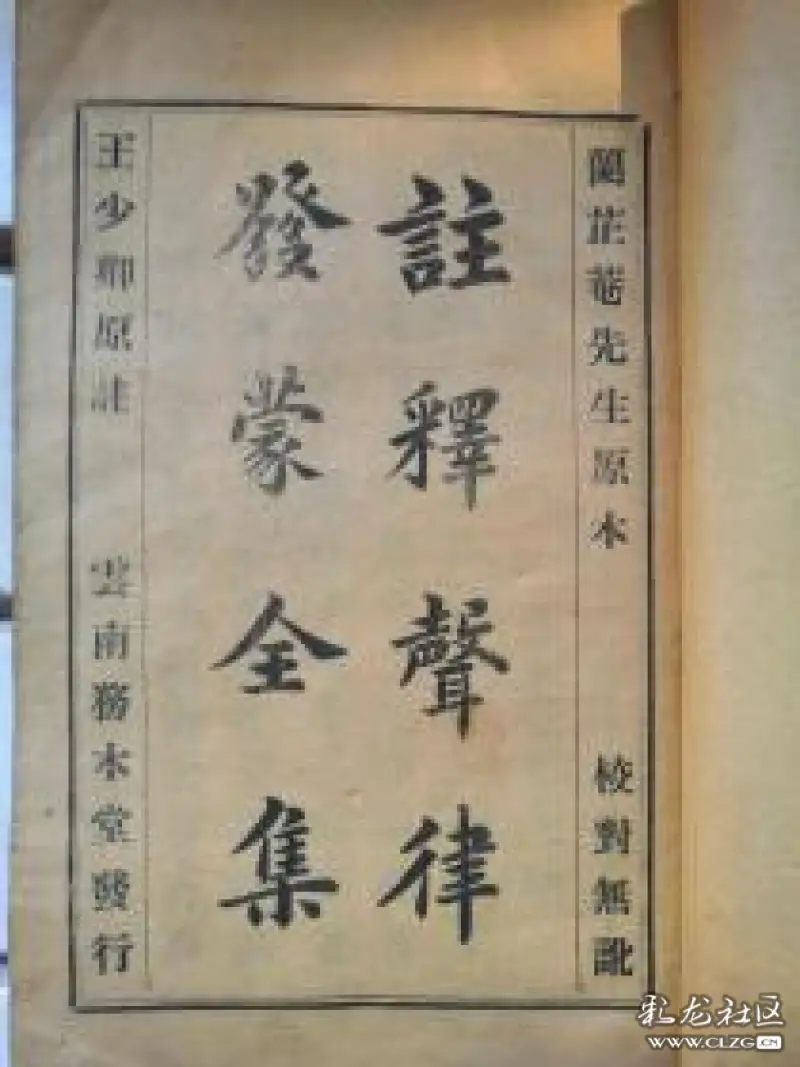 蘭芷菴先生原本
校對無訛
註釋聲律
發蒙全集
王少卿原註
雲南務本堂發行
彩龙社区
WWW.CLZG.CN